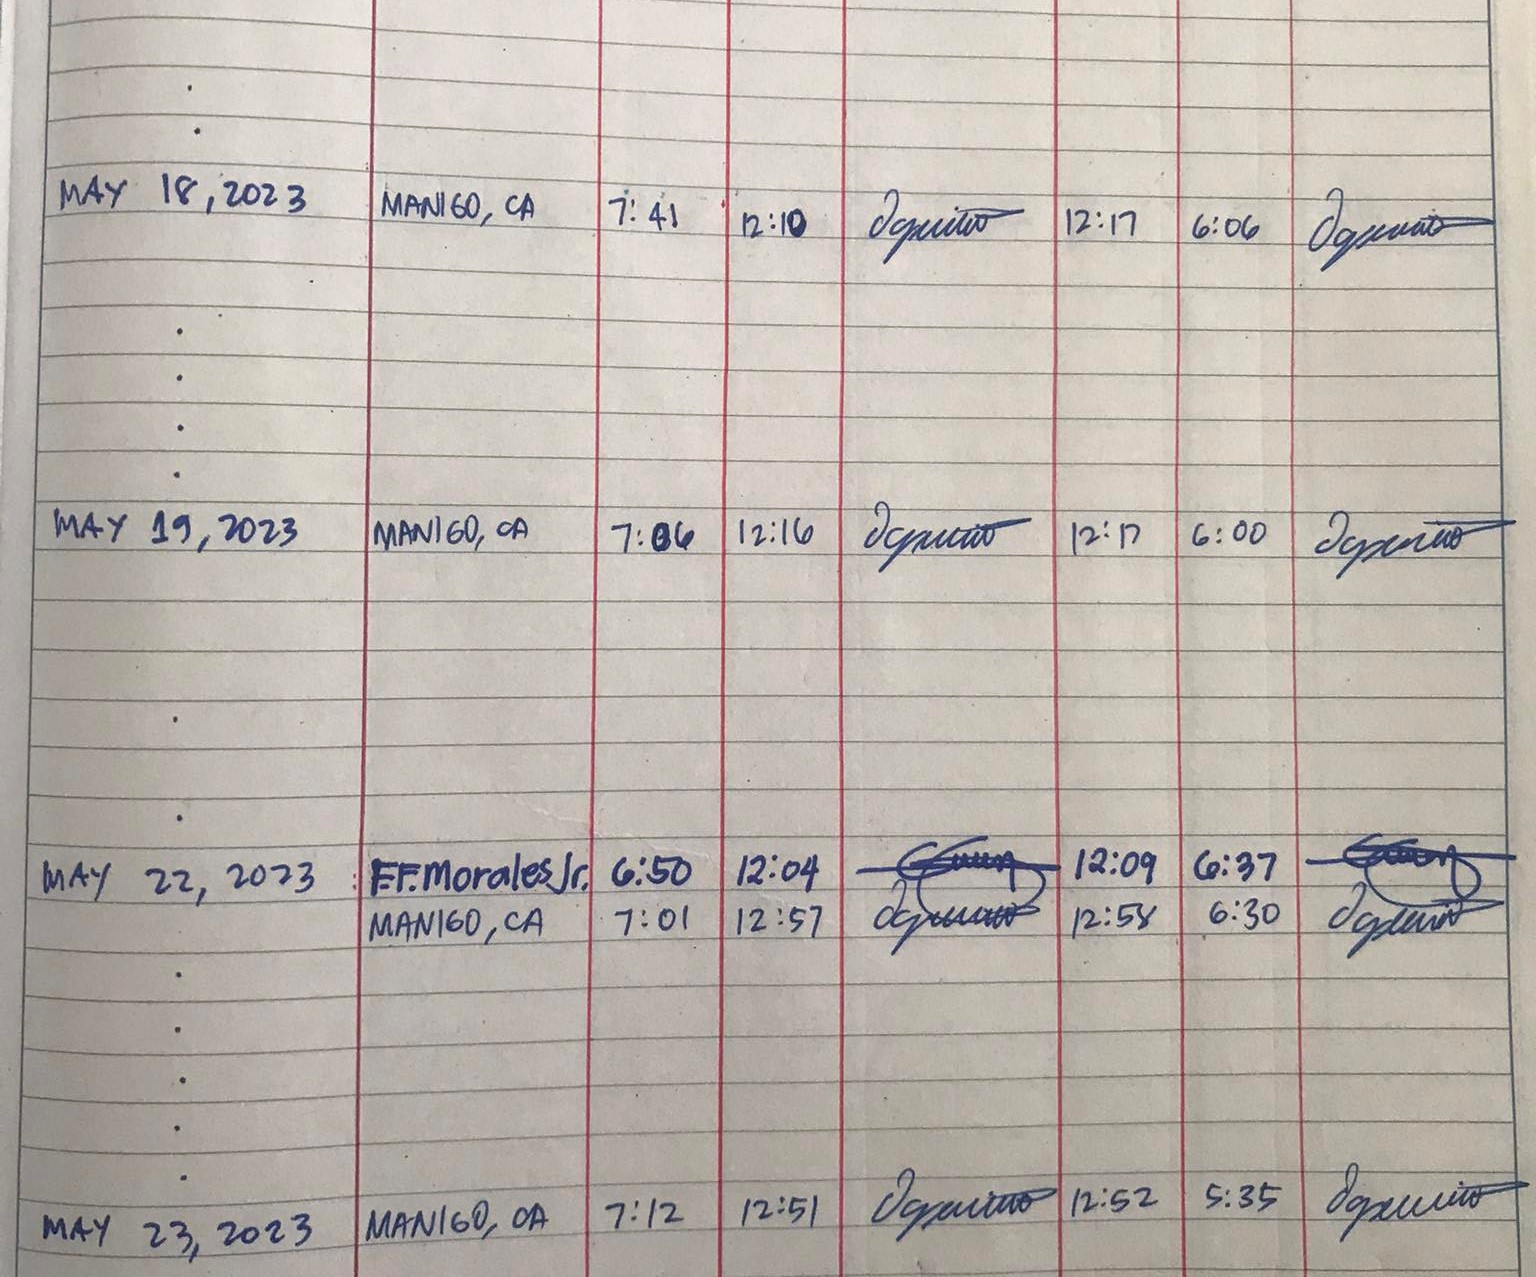 MAY 18, 2023 MANIGO, CA 7:41 12:10 12:17 6:06
MAY 19, 2023 MANIGO, CA 7:06 12:16 12:17 6:00
MAY 22, 2023 E.F. Morales Jr. 6:50 12:04 12:09 6:37
MANIGO, CA 7:01 12:57 12:58 6:30
MAY 23, 2023 MANIGO, CA 7:12 12:51 12:52 5:35